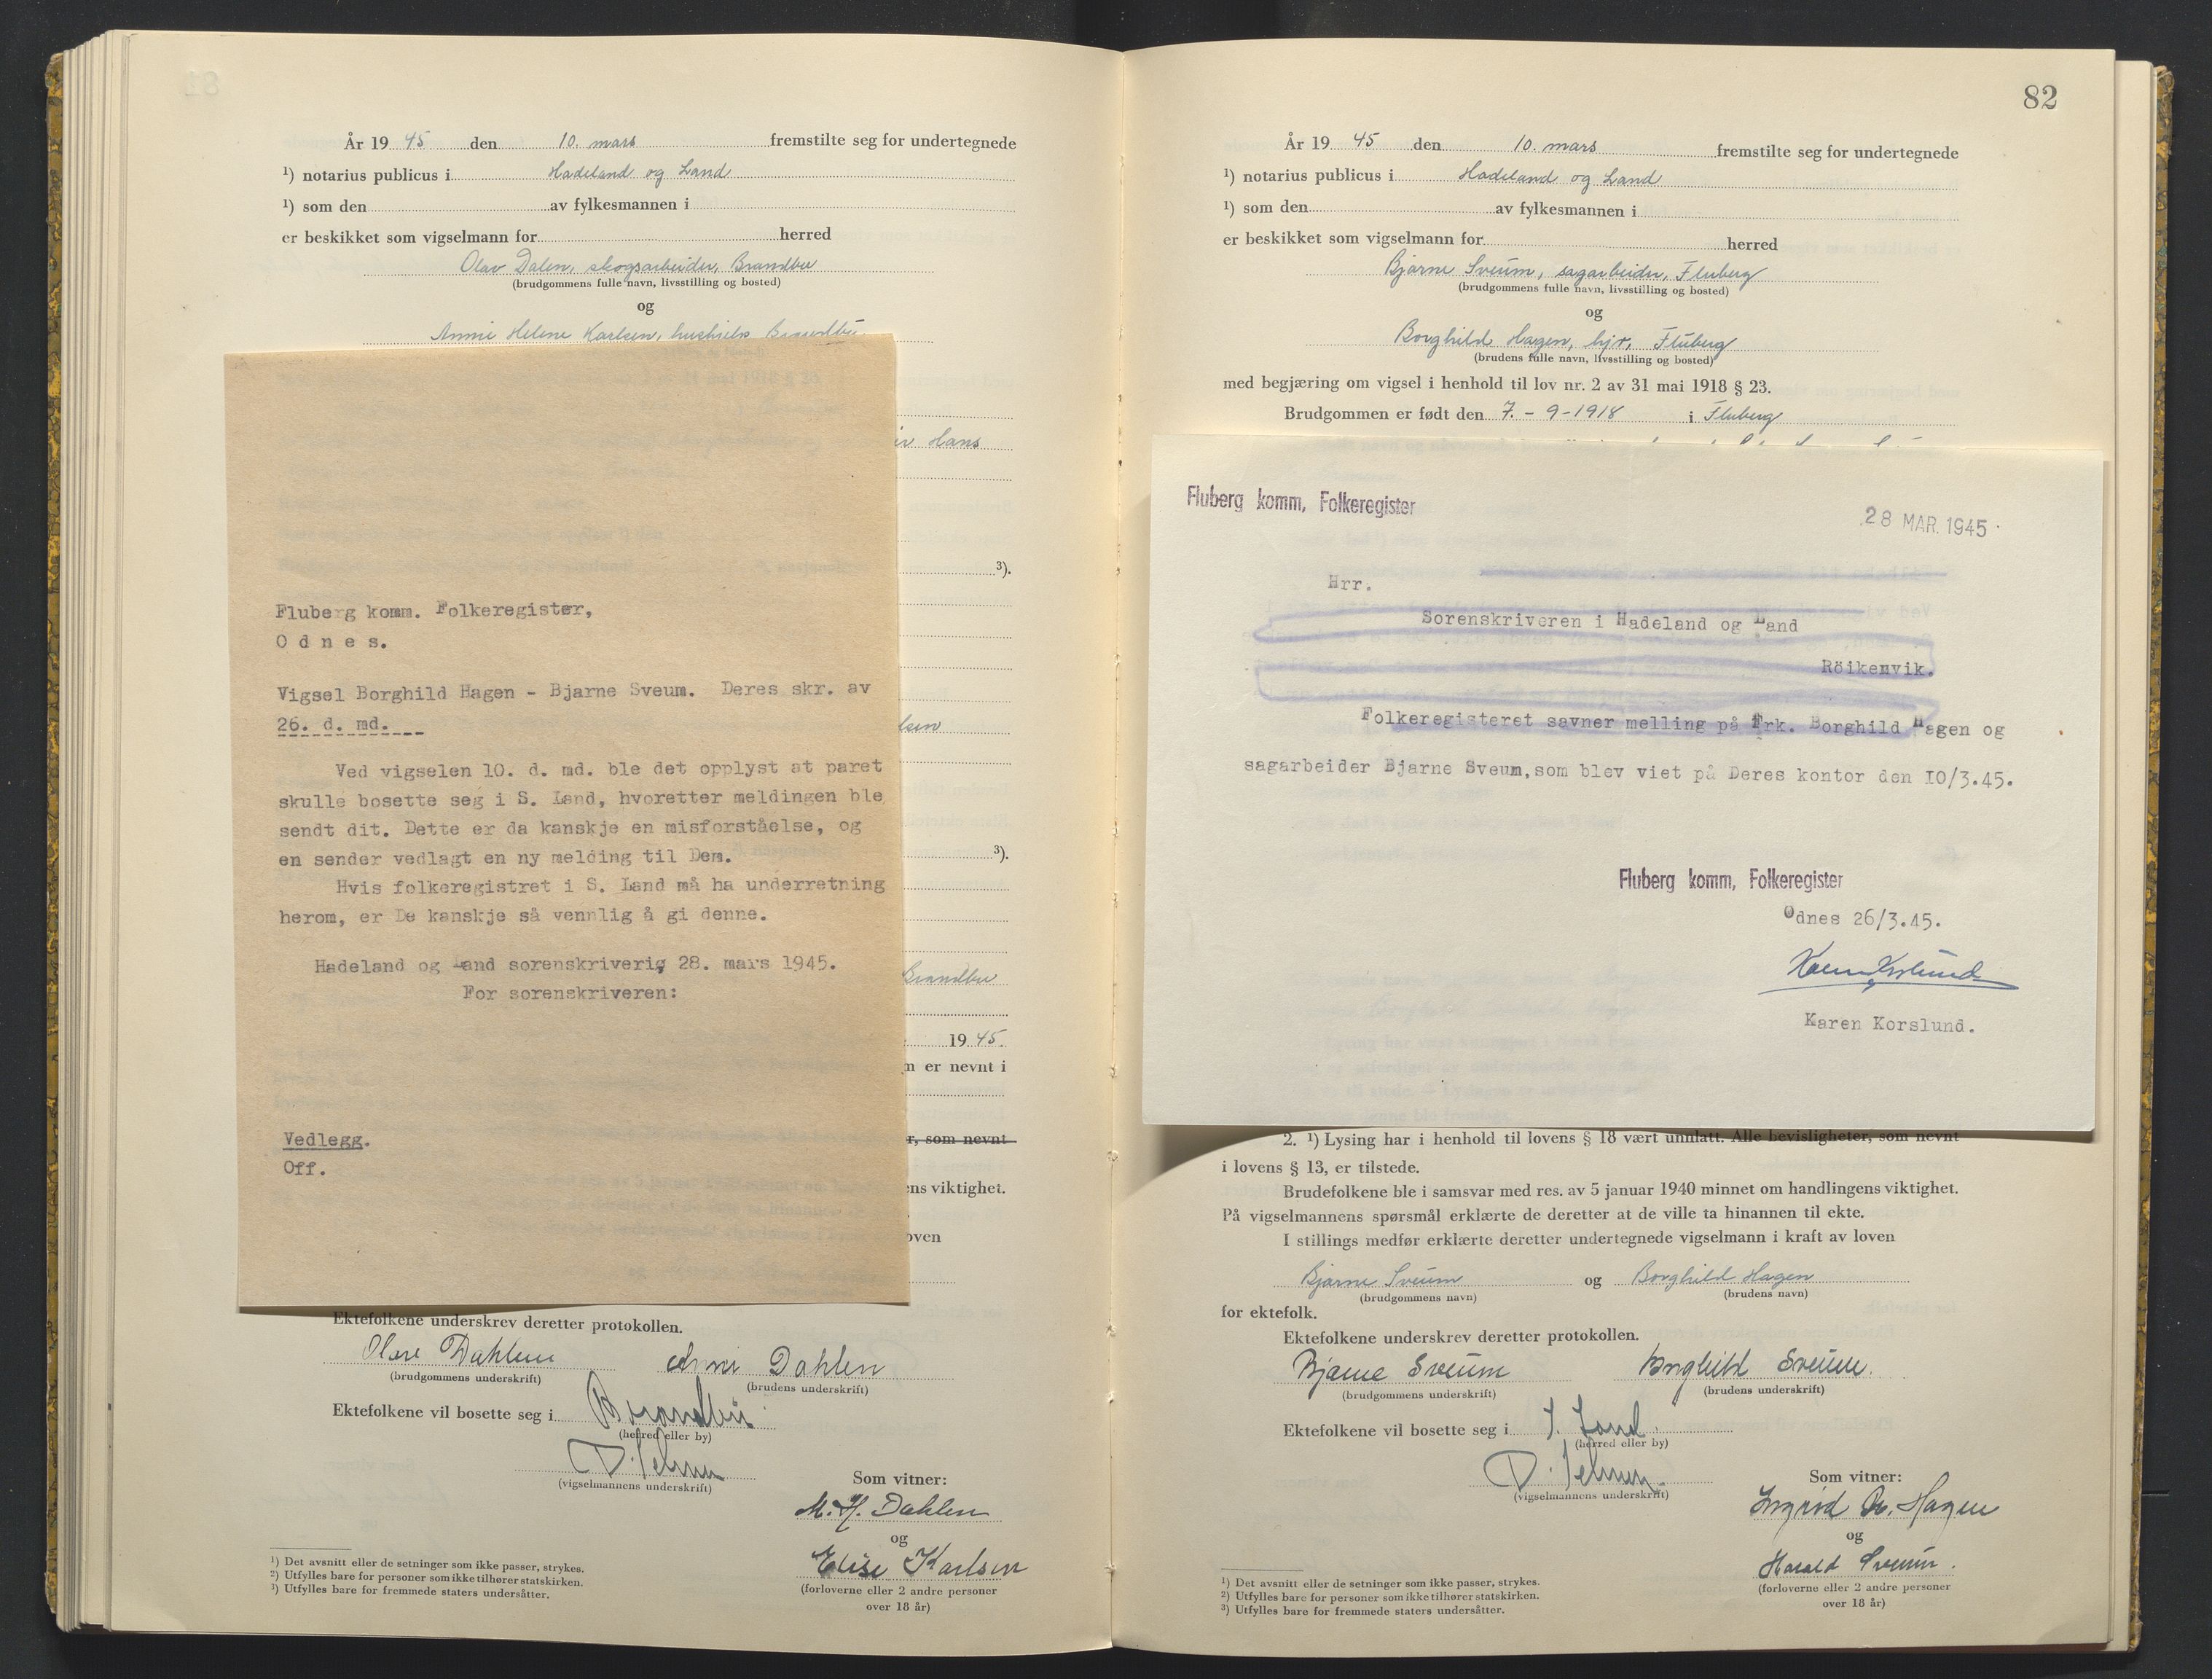 År 19 45 den 10. mars fremstilte seg for undertegnede
¹) notarius publicus i Hadeland og Land
¹) som den av fylkesmannen i
er beskikket som vigselmann for herred
Olav Dalen, skogsarbeider, Brandbu
(brudgommens fulle navn, livsstilling og bosted)
og
Annie Helene Karlsen, hushjelp Brandbu
Hans
³).
lsen
³).
Brandbu
19 45.
m er nevnt i
r, som nevnt
ens viktighet.
oven
Fluberg komm. Folkeregister,
O d n e s.
Vigsel Borghild Hagen - Bjarne Sveum. Deres skr. av
26. d. md.
Ved vigselen 10. d. md. ble det opplyst at paret
skulle bosette seg i S. Land, hvoretter meldingen ble
sendt dit. Dette er da kanskje en misforståelse, og
en sender vedlagt en ny melding til Dem.
Hvis folkeregistret i S. Land må ha underretning
herom, er De kanskje så vennlig å gi denne.
Hadeland og Land sorenskriveri, 28. mars 1945.
For sorenskriveren:
Vedlegg.
Off.
Ektefolkene underskrev deretter protokollen.
Olav Dahlen Anni Dahlen
(brudgommens underskrift) (brudens underskrift)
Ektefolkene vil bosette seg i Brandbu
(herred eller by)
(vigselmannens underskrift)
Som vitner:
M. H. Dahlen
og
Elise Karlsen
(forloverne eller 2 andre personer
over 18 år)
¹) Det avsnitt eller de setninger som ikke passer, strykes.
²) Utfylles bare for personer som ikke tilhører statskirken.
³) Utfylles bare for fremmede staters undersåtter.
82
År 19 45 den 10. mars fremstilte seg for undertegnede
¹) notarius publicus i Hadeland og Land
¹) som den av fylkesmannen i
er beskikket som vigselmann for herred
Bjarne Sveum, sagarbeider, Fluberg
(brudgommens fulle navn, livsstilling og bosted)
og
Borghild Hagen, hjv., Fluberg
(brudens fulle navn, livsstilling og bosted)
med begjæring om vigsel i henhold til lov nr. 2 av 31 mai 1918 § 23.
Brudgommen er født den 7. - 9 - 1918 i Fluberg
Fluberg komm, Folkeregister
28 MAR. 1945
Hrr.
Sorenskriveren i Hadeland og Land
Röikenvik.
Folkeregisteret savner melling på Frk. Borghild Hagen og
sagarbeider Bjarne Sveum,som blev viet på Deres kontor den IO/3.45.
Fluberg komm, Folkeregister
Odnes 26/3.45.
Karen Korslund
Karen Korslund.
2. ¹) Lysing har i henhold til lovens § 18 vært unnlatt. Alle bevisligheter, som nevnt
i lovens § 13, er tilstede.
Brudefolkene ble i samsvar med res. av 5 januar 1940 minnet om handlingens viktighet.
På vigselmannens spørsmål erklærte de deretter at de ville ta hinannen til ekte.
I stillings medfør erklærte deretter undertegnede vigselmann i kraft av loven
Bjarne Sveum og Borghild Hagen
(brudgommens navn) (brudens navn)
for ektefolk.
Ektefolkene underskrev deretter protokollen.
Bjarne Sveum Borghild Sveum.
(brudgommens underskrift) (brudens underskrift)
Ektefolkene vil bosette seg i S. Land.
(herred eller by)
(vigselmannens underskrift)
Som vitner:
Ingrid Hagen
og
Harald Sveum.
(forloverne eller 2 andre personer
over 18 år)
¹) Det avsnitt eller de setninger som ikke passer, strykes.
²) Utfylles bare for personer som ikke tilhører statskirken.
³) Utfylles bare for fremmede staters undersåtter.